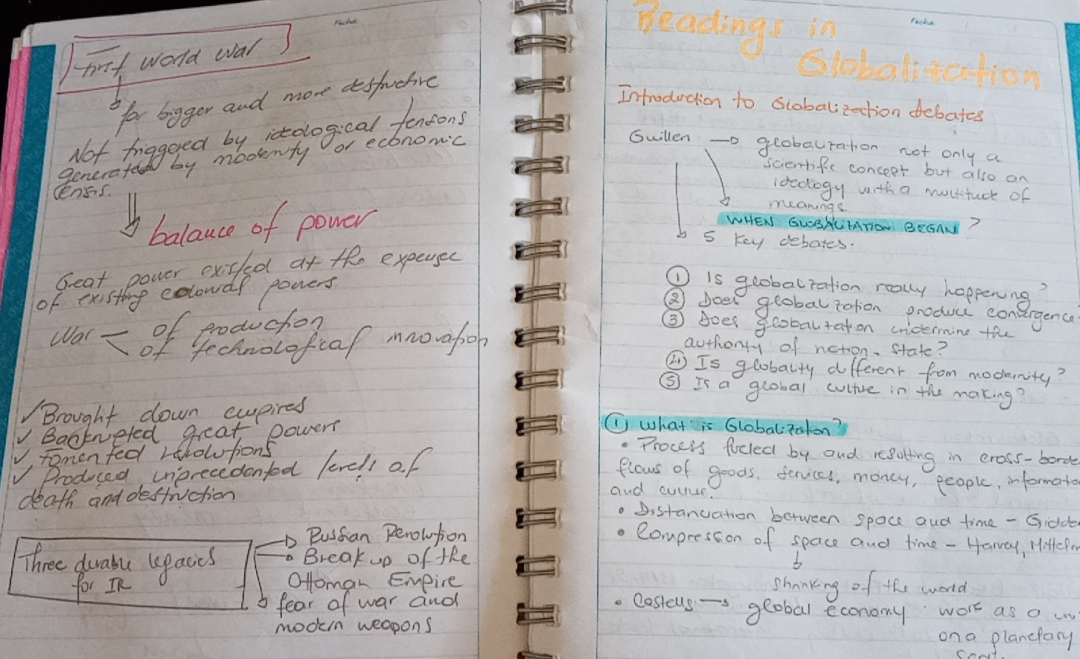 Fecha
First World War
far bigger and more destructive
Not triggered by ideological tensions
generated by modernity or economic
balance of power
Great power existed at the expense
of existing colonial powers.
War of production
of technological innovation
✓ Brought down empires
✓ Backrupted great powers
✓ Fomented revolutions
✓ Produced unprecedented levels of
death and destruction
Three durable legacies
for IR
Russian Revolution
Break up of the
Ottoman Empire
fear of war and
modern weapons
Fecha
Readings in
Globalization
Introduction to Globalization debates
Guillen → globalization not only a
scientific concept but also an
ideology with a multitude of
meanings.
WHEN GLOBALIZATION BEGAN?
5 key debates.
① Is globalization really happening?
② Does globalization produce convergence
③ Does globalization undermine the
authority of nation-state?
④ Is globality different from modernity?
⑤ Is a global culture in the making?
① What is Globalization?
• Process fueled by and resulting in cross-borde
flows of goods, services, money, people, informatio
and culture.
• Distanciation between space and time - Gidde
• Compression of space and time - Harvey, Mittelm
shrinking of the world
• Castells → global economy: work as a un
on a planetary